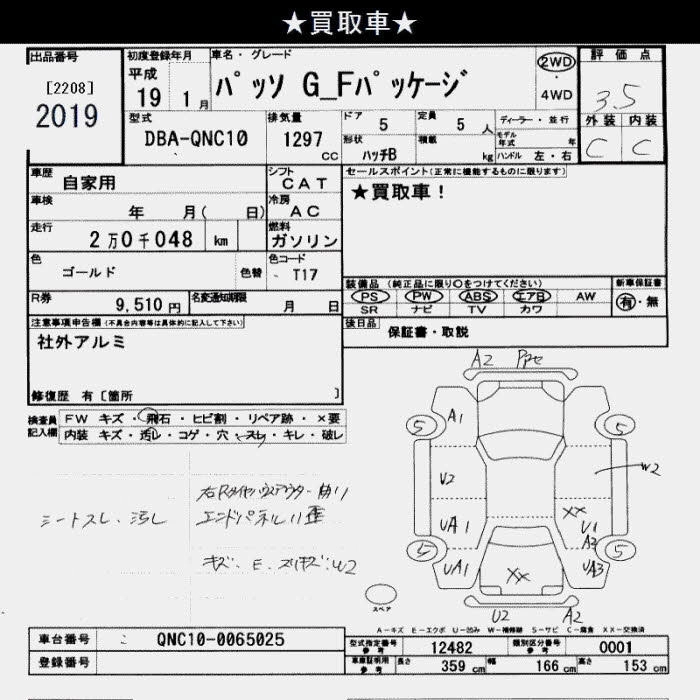 ★買取車★
出品番号
[2208]
2019
初度登録年月
平成
19 1 月
車名・グレード
パッソ G_Fパッケージ
2WD
4WD
評価点
3.5
外装 内装
C C
型式
DBA-QNC10
排気量
1297
CC
ドア 5
定員 5 人
形状
ハッチB
積載
kg
ディーラー・並行
モデル年式 年
ハンドル 左・右
車歴 自家用
シフト
CAT
車検 年 月( 日)
冷房
AC
走行 2万0千048 km
燃料
ガソリン
色 ゴールド 色替
色コード
T17
R券 9,510円
名変通知期限 月 日
セールスポイント(正常に機能するものに限ります)
★買取車!
装備品(純正品に限り○をつけてください)
PS PW ABS エアB AW
SR ナビ TV カワ
新車保証書
有・無
後日品 保証書・取説
注意事項申告欄(不具合内容等は具体的に記入して下さい)
社外アルミ
修復歴 有〔箇所 〕
検査員記入欄
FW キズ・飛石・ヒビ割・リペア跡・×要
内装 キズ・汚レ・コゲ・穴・スレ・キレ・破レ
シートスレ・汚レ
エンドパネル11歪
キズ・E・スリキズ・W2
A2
A1
5
5
U2
W2
UA1
XX
U1
A2
5
5
UA1
XX
UA3
スペア
U2 A2
A-キズ E-エクボ U-凹み W-補修跡 S-サビ C-腐食 XX-交換済
車台番号 QNC10-0065025
登録番号
型式指定番号 参考 12482
類別区分番号 参考 0001
車庫証明用 参考 長さ 359 cm 幅 166 cm 高さ 153 cm